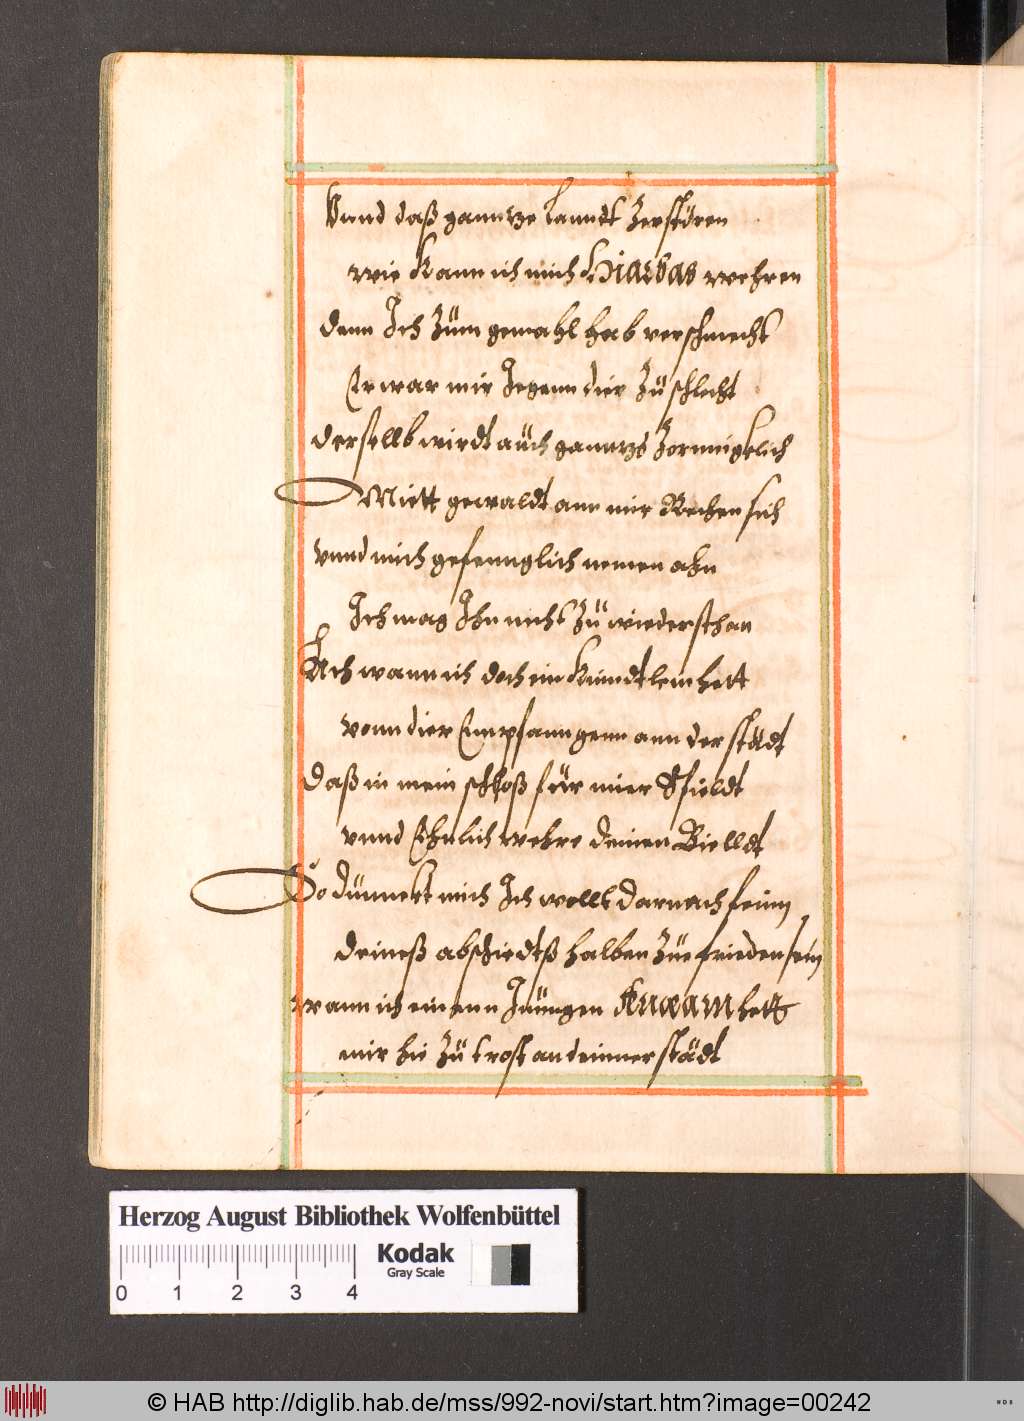 Vnnd daß ganntze lanndt Zerstören
wie kann ich mich Hiarbas wehren
denn Ich Züm gemahl hab verschmecht
Er war mir Jegenn dier Zü schlecht
derselb wirdt aüch ganntz Zornnigklich
Miett gewaldt ann mir Rechen sich
vnnd mich gefennglich nemen ahn
Ich mag Ihn nicht Zü wiedersthan
Ach wann ich doch ein kinndtlein hett
vonn dier Empfanngenn ann der städt
Daß in mein schloß für mier Spieldt
vnnd Ehnlich wehre deinen Bielldt
So dünnckt mich Ich wollt darnach feinn
deineß abschiedtß halben Züe frieden sein
wann ich einenn Jüngen Aneam hett
mir hie Zü trost an deinner städt
Herzog August Bibliothek Wolfenbüttel
Kodak
Gray Scale
0 1 2 3 4
© HAB http://diglib.hab.de/mss/992-novi/start.htm?image=00242